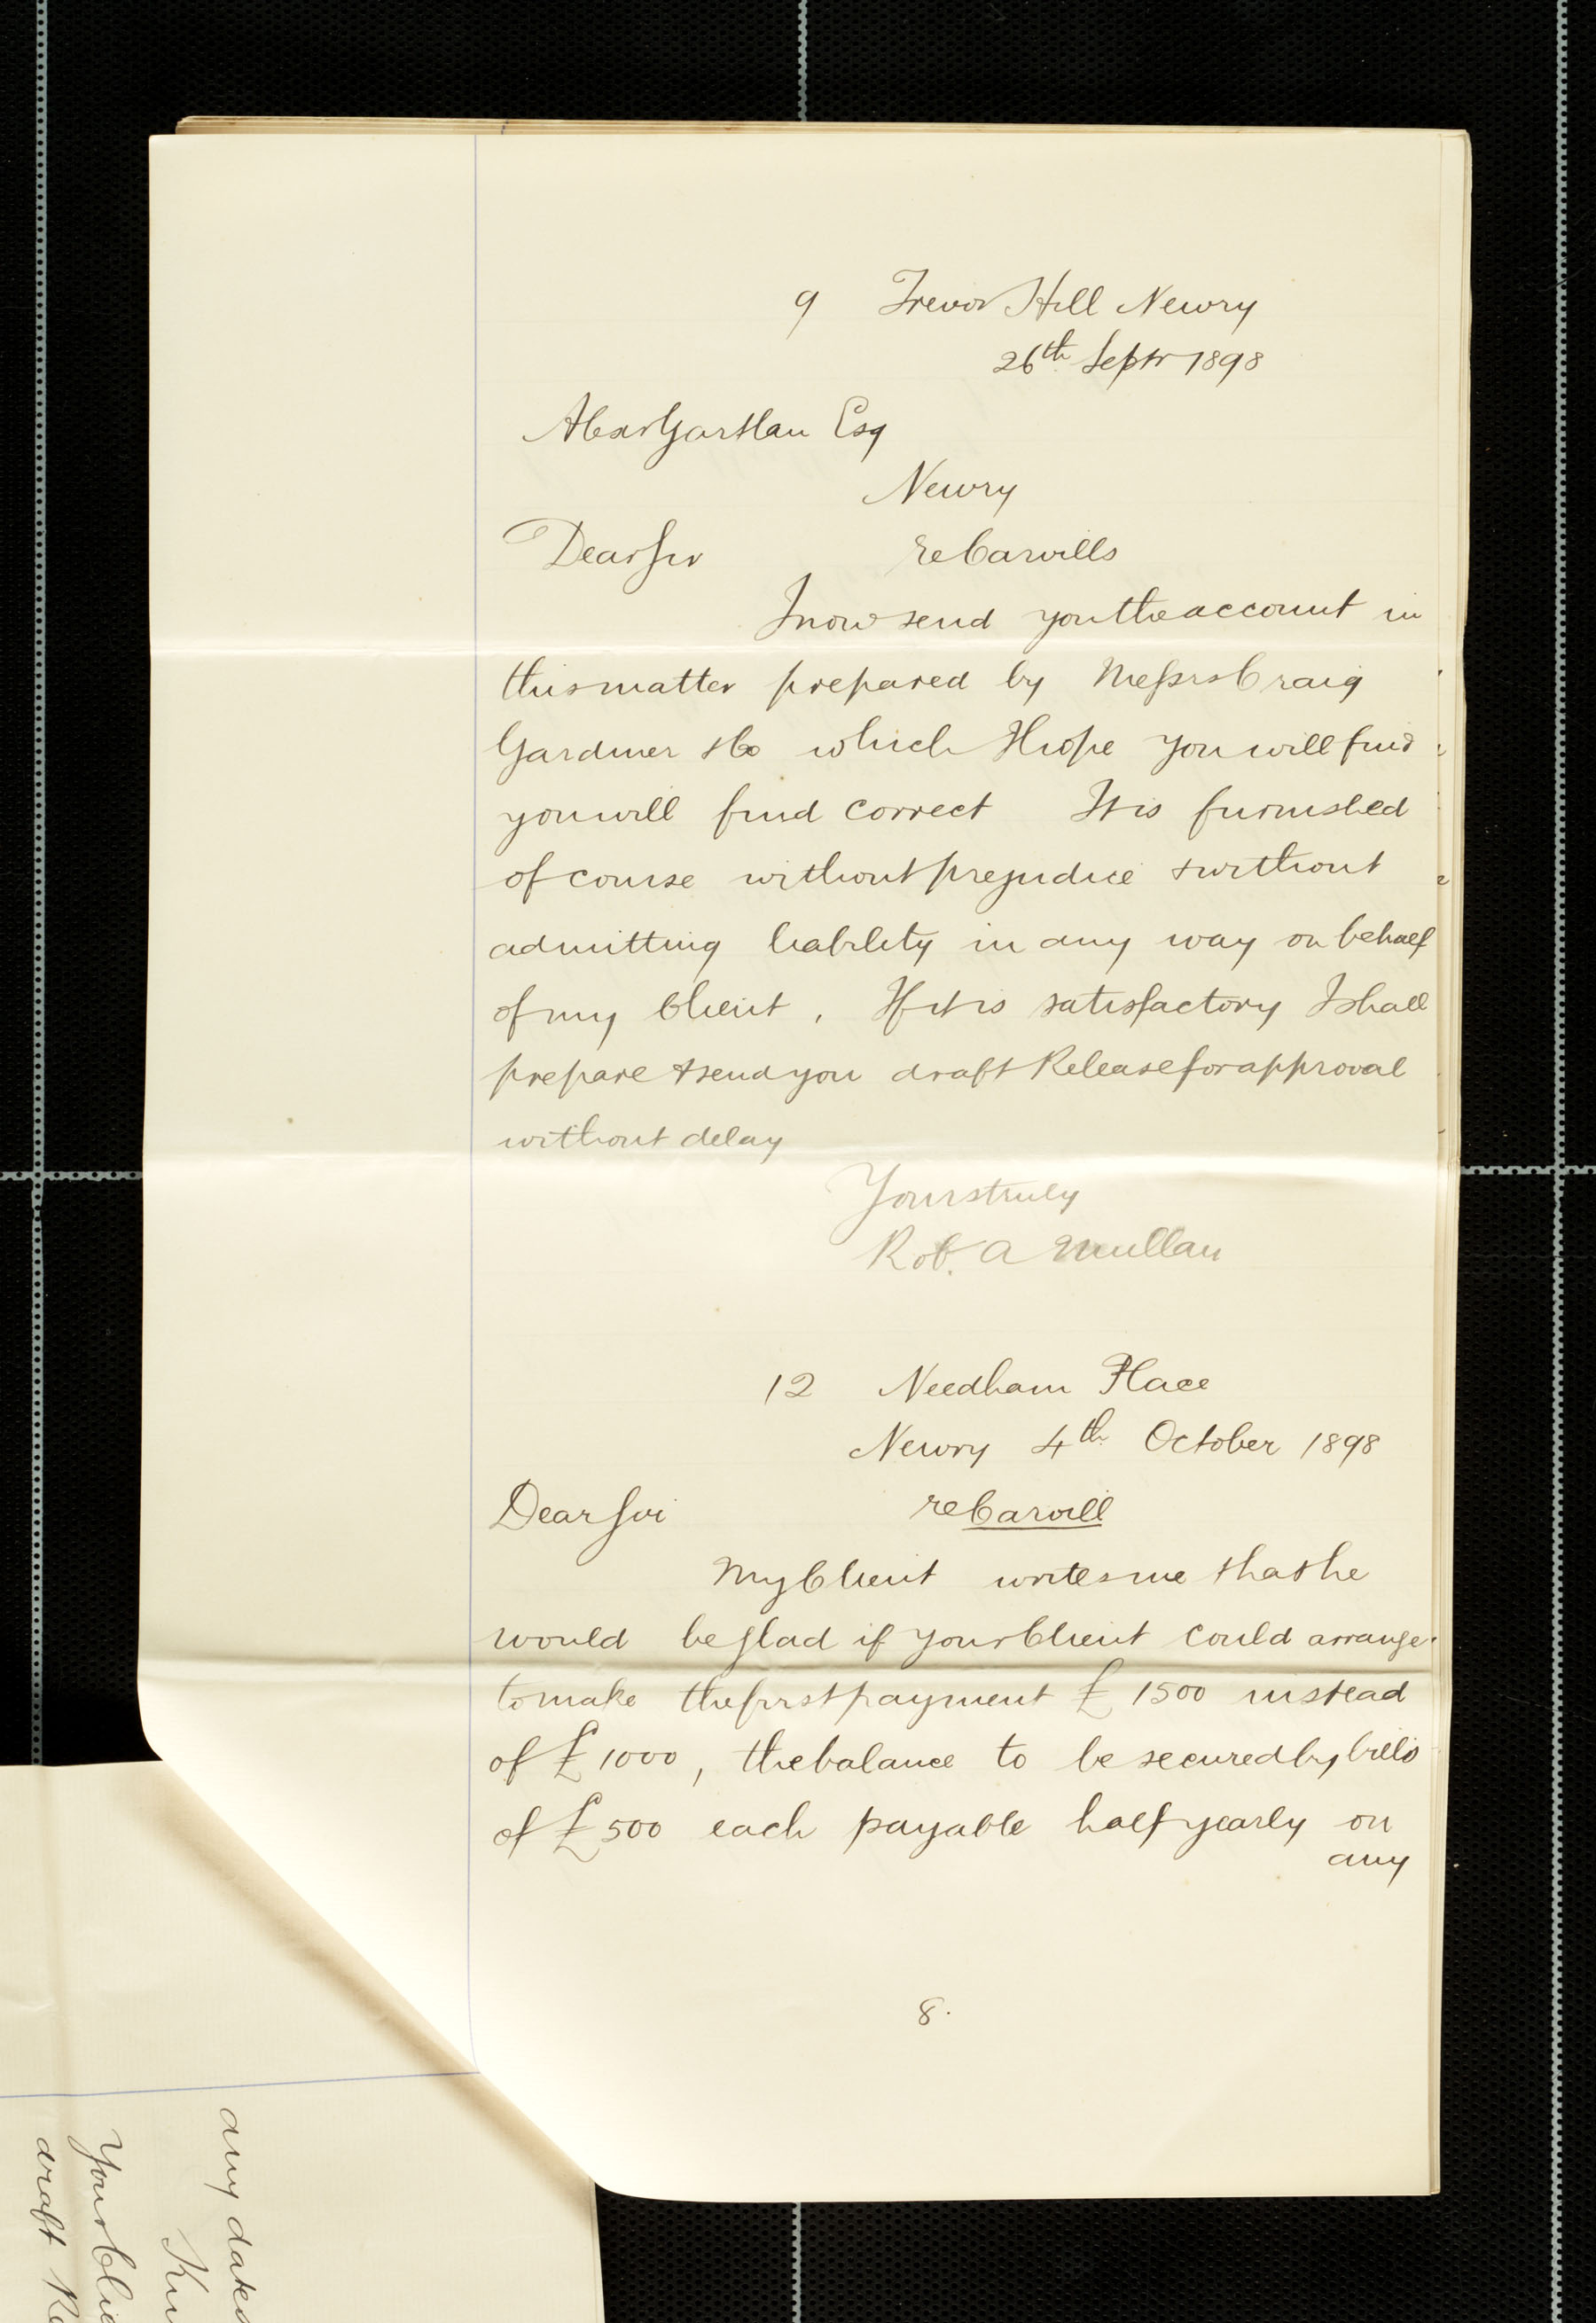 9 Trevor Hill Newry
26th Septr 1898
Alexr Gartlan Esq
Newry
Dear Sir re Carvills
I now send you the account in
this matter prepared by Messrs Craig
Gardner & Co which I hope you will find
you will find correct It is furnished
of course without prejudice & without
admitting liability in any way on behalf
of my Client . If it is satisfactory I shall
prepare & send you draft Release for approval
without delay
Yours truly
Rob. A Mullan
12 Needham Place
Newry 4th October 1898
Dear Sir re Carvill
My Client writes me that he
would be glad if your Client could arrange
to make the first payment £ 1500 instead
of £ 1000 , the balance to be secured by bills
of £ 500 each payable half yearly on
any
8.
any dates
Your Clie
draft